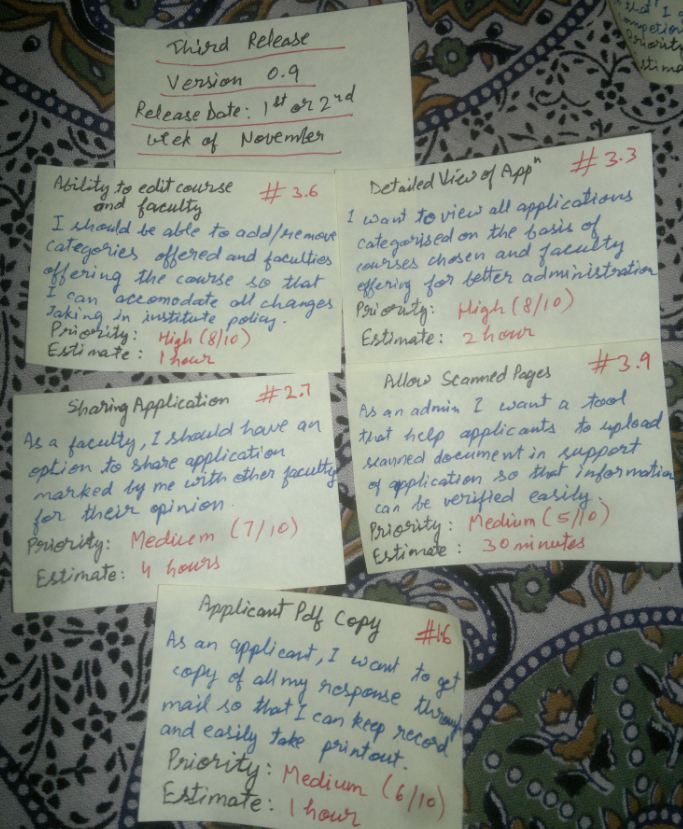 Third Release
Version 0.9
Release Date: 1st or 2nd
week of November
Ability to edit course # 3.6
and faculty
I should be able to add/remove
categories offered and faculties
offering the course so that
I can accomodate all changes
taking in institute policy.
Priority: High (8/10)
Estimate: 1 hour
Detailed View of Appn # 3.3
I want to view all applications
categorised on the basis of
courses chosen and faculty
offering for better administration
Priority: High (8/10)
Estimate: 2 hour
Sharing Application # 2.7
As a faculty, I should have an
option to share application
marked by me with other faculty
for their opinion.
Priority: Medium (7/10)
Estimate: 4 hours
Allow Scanned Pages # 3.9
As an admin I want a tool
that help applicants to upload
scanned document in support
of application so that information
can be verified easily.
Priority: Medium (5/10)
Estimate: 30 minutes
Applicant Pdf Copy #1.6
As an applicant, I want to get
copy of all my response through
mail so that I can keep record
and easily take printout.
Priority: Medium (6/10)
Estimate: 1 hour
that I
Priority